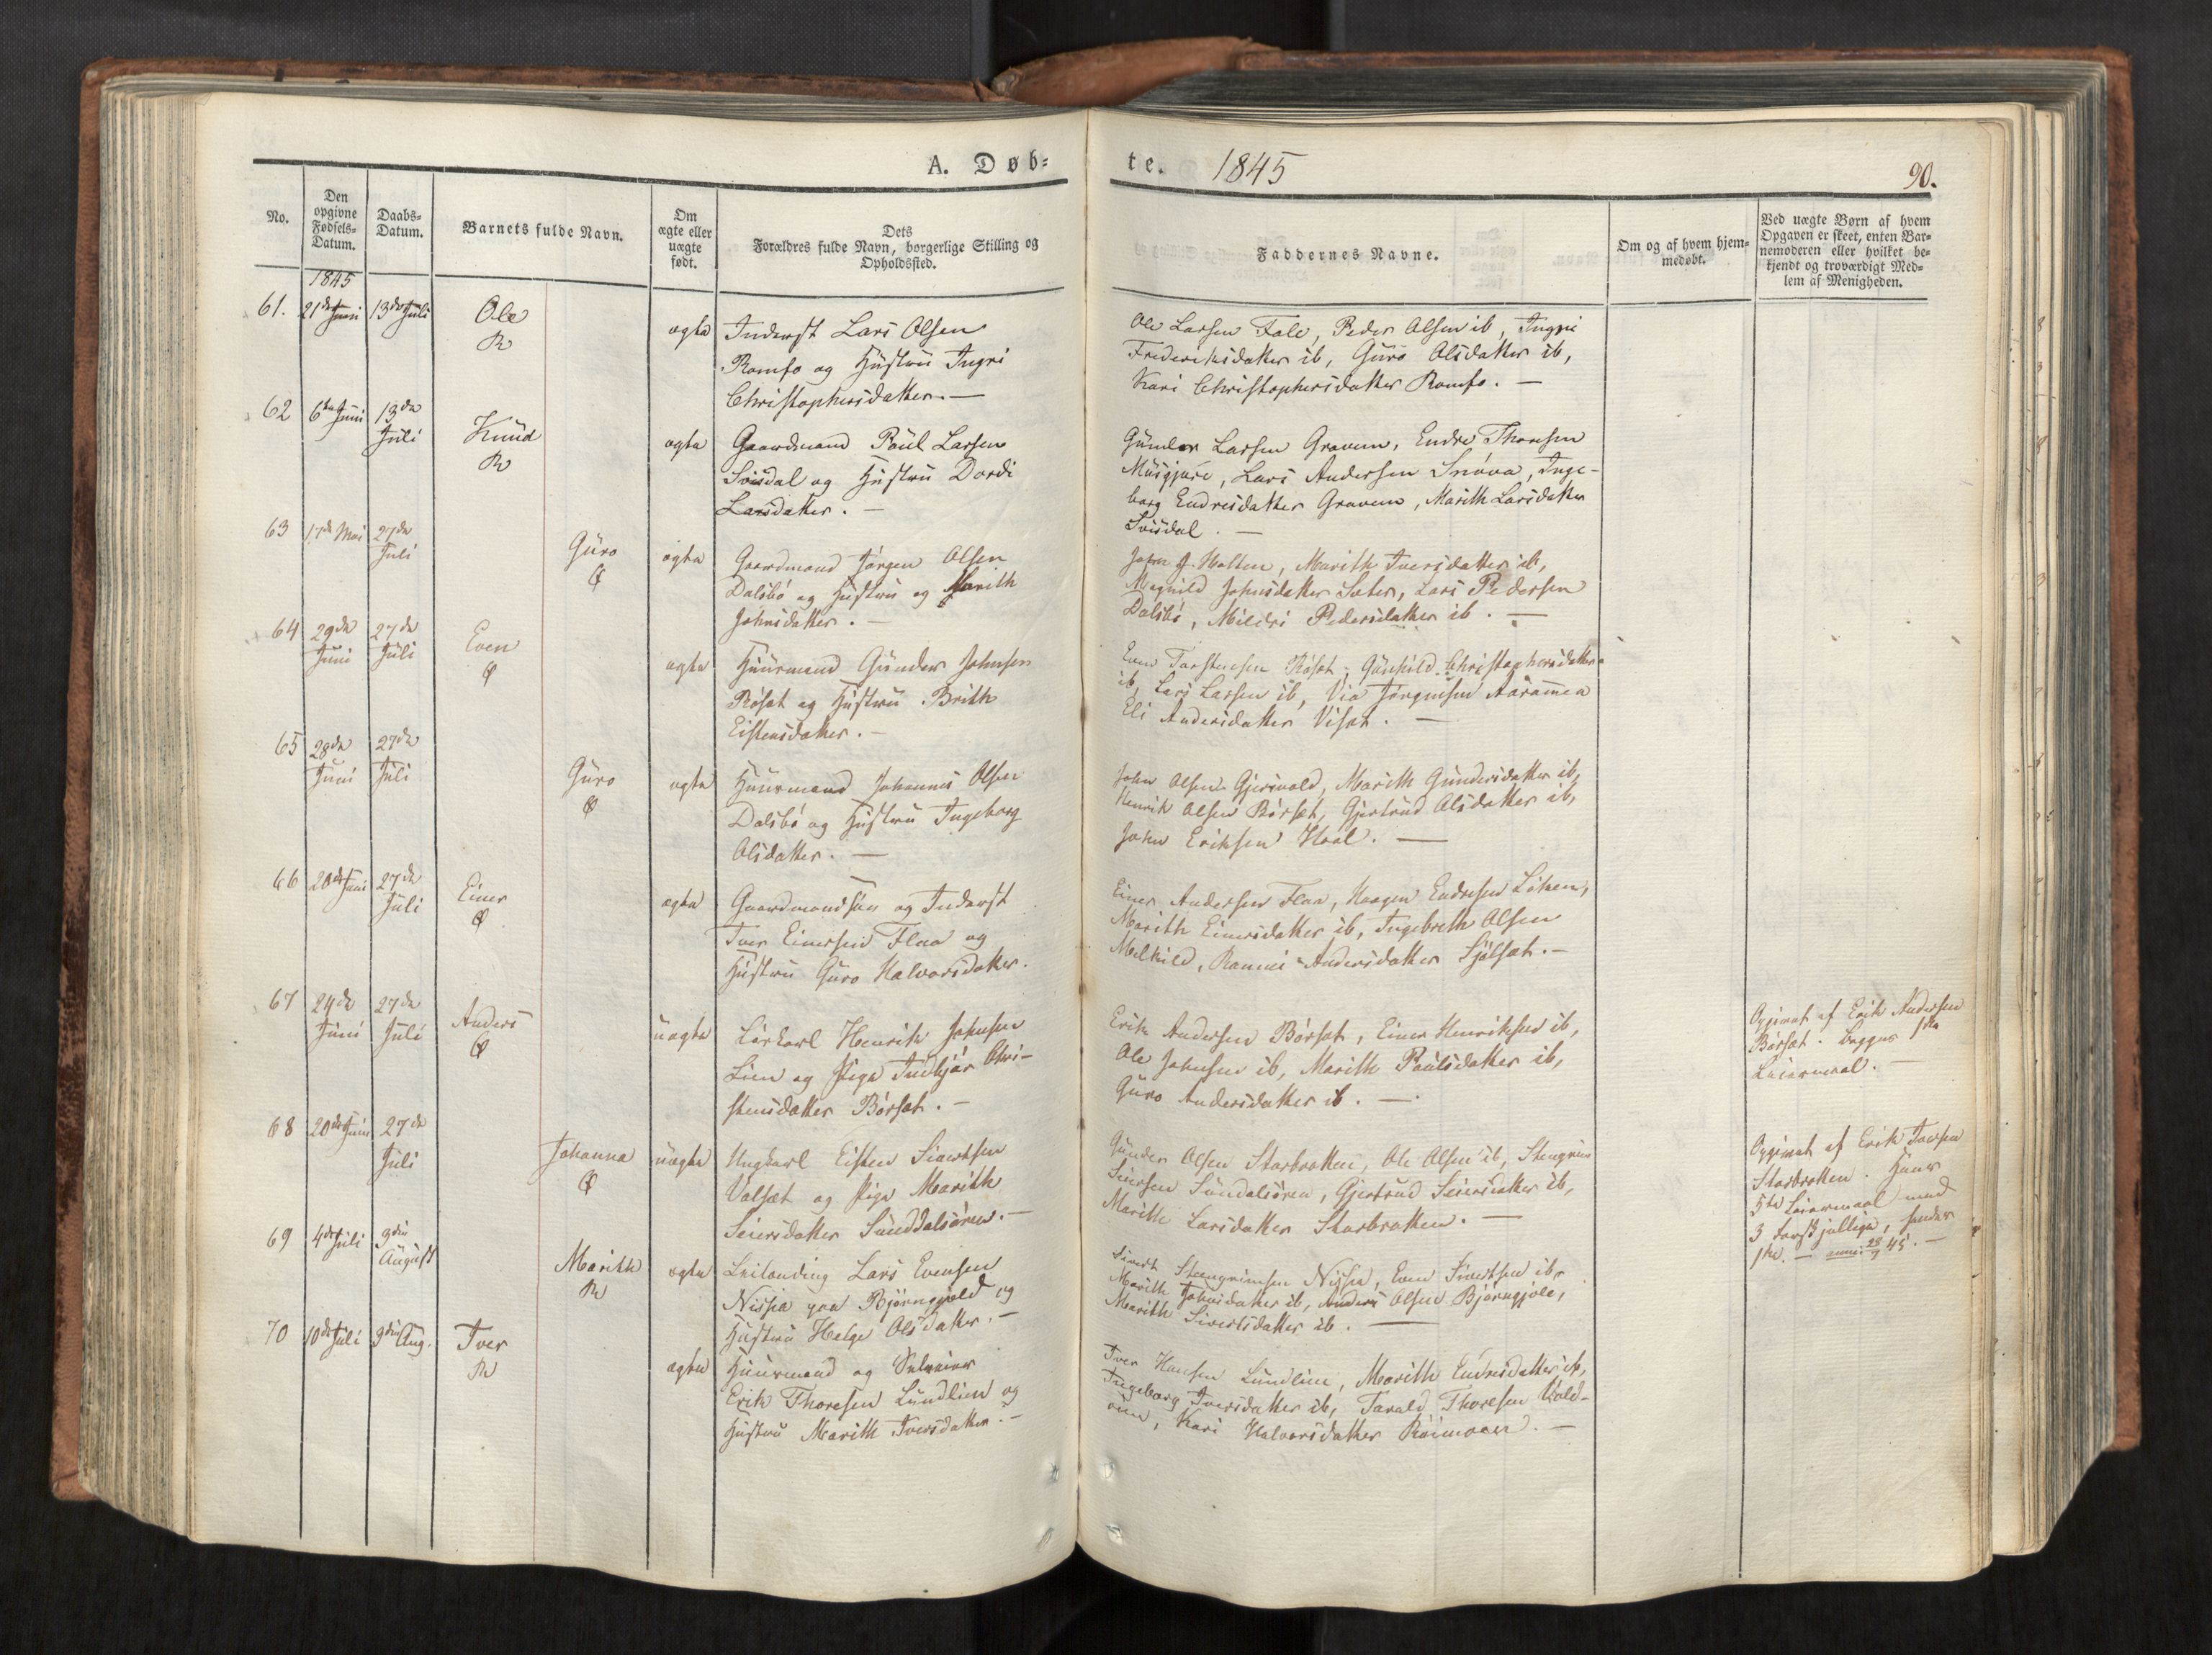 A. Døb=
te. 1845
90.
No.
Den opgivne Fødsels= Datum.
Daabs= Datum.
Barnets fulde Navn.
Om ægte eller uægte født.
Dets Forældres fulde Navn, borgerlige Stilling og Opholdssted.
Faddernes Navne.
Om og af hvem hjem= medøbt.
Ved uægte Børn af hvem Opgaven er skeet, enten Bar= nemoderen eller hvilket be= kjendt og troværdigt Med= lem af Menigheden.
1845
61. 21de Juni 13de Juli Ole R ægte
Inderst Lars Olsen
Romfo og Hustru Ingri
Christophersdatter. —
Ole Larsen Fale, Peder Olsen ib, Ingri
Frederiksdatter ib, Guro Olsdatter ib,
Kari Christophersdatter Romfo. —
62 6te Juni 13de Juli Knud R ægte
Gaardmand Poul Larsen
Svisdal og Hustru Dordi
Larsdatter. —
Gunder Larsen Gravem, Endre Thoresen
Musgjære, Lars Andersen Snöva, Inge-
borg Endresdatter Gravem, Marith Larsdatter
Svisdal. —
63 17de Mai 27de Juli Guro Ø ægte
Gaardmand Jörgen Olsen
Dalsbö og Hustru og Marith
Johnsdatter. —
John J. Holten, Marith Iversdatter ib,
Magnild Johnsdatter Sæter, Lars Pedersen
Dalsbö, Mildri Pedersdatter ib. —
64 29de Juni 27de Juli Even Ø ægte
Huusmand Gunder Johnsen
Röset og Hustru Brith
Eistensdatter. —
Even Torstensen Röset, Gunhild Christophersdatter
ib, Lars Larsen ib, Via Jörgensen
Eli Andersdatter Viset. —
65 28de Juni 27de Juli Guro Ø ægte
Huusmand Johannes Olsen
Dalsbö og Hustru Ingeborg
Olsdatter. —
John Olsen Gjersvold, Marith Gundersdatter ib,
Henrik Olsen Börset, Gjertrud Olsdatter ib,
John Eriksen Hoel. —
66 20de Juni 27de Juli Einer Ø ægte
Gaardmandsön og Inderst
Iver Einersen Flaa og
Hustru Guro Halvorsdatter.
Einer Andersen Flaa, Haagen Endresen Löken,
Marith Einersdatter ib, Ingebreth Olsen
Melkild, Andersdatter Sjölset. —
67 24de Juni 27de Juli Anders Ø uægte
Henrik Johnsen
Lien og Pige Chri-
stensdatter Börset. —
Erik Andersen Börset, Einer Henriksen ib,
Ole Johnsen ib, Marith Poulsdatter ib,
Guro Andersdatter ib. —
Opgivet af Erik Andersen
Börset. Begges 1ste
Leiermaal. —
68 20de Juni 27de Juli Johanna Ø uægte
Ungkarl Eisten Sivertsen
Valset og Pige Marith
Seiersdatter Sunddalsören. —
Gunder Olsen Storbrotten, Ole Olsen ib, Stengrim
Seiersen Sundalsören, Gjertrud Seiersdatter ib,
Marith Larsdatter Storbrotten. —
Opgivet af Erik Iversen
Storbrotten. Hans
5te Leiermaal med
3 forskjellige, hendes
1ste. — 45. —
69 4de Juli 3die August Marith R ægte
Leilending Lars Evensen
Nisja paa Björnegjeld og
Hustru Helge Olsdatter. —
Sivert Stengrimsen Nisja, Even Sivertsen ib,
Marith Johnsdatter ib, Anders Olsen Björnegjele,
Marith Sivertsdatter ib. —
70 10de Juli 3die Aug. Iver R ægte
Huusmand og Selveier
Erik Thoresen Lundlien og
Hustru Marith Iversdatter. —
Iver Hansen Lundlien, Marith Endresdatter ib,
Ingeborg Iversdatter ib, Tarald Thoresen Vold-
öien, Kari Halvorsdatter Röimoen. —